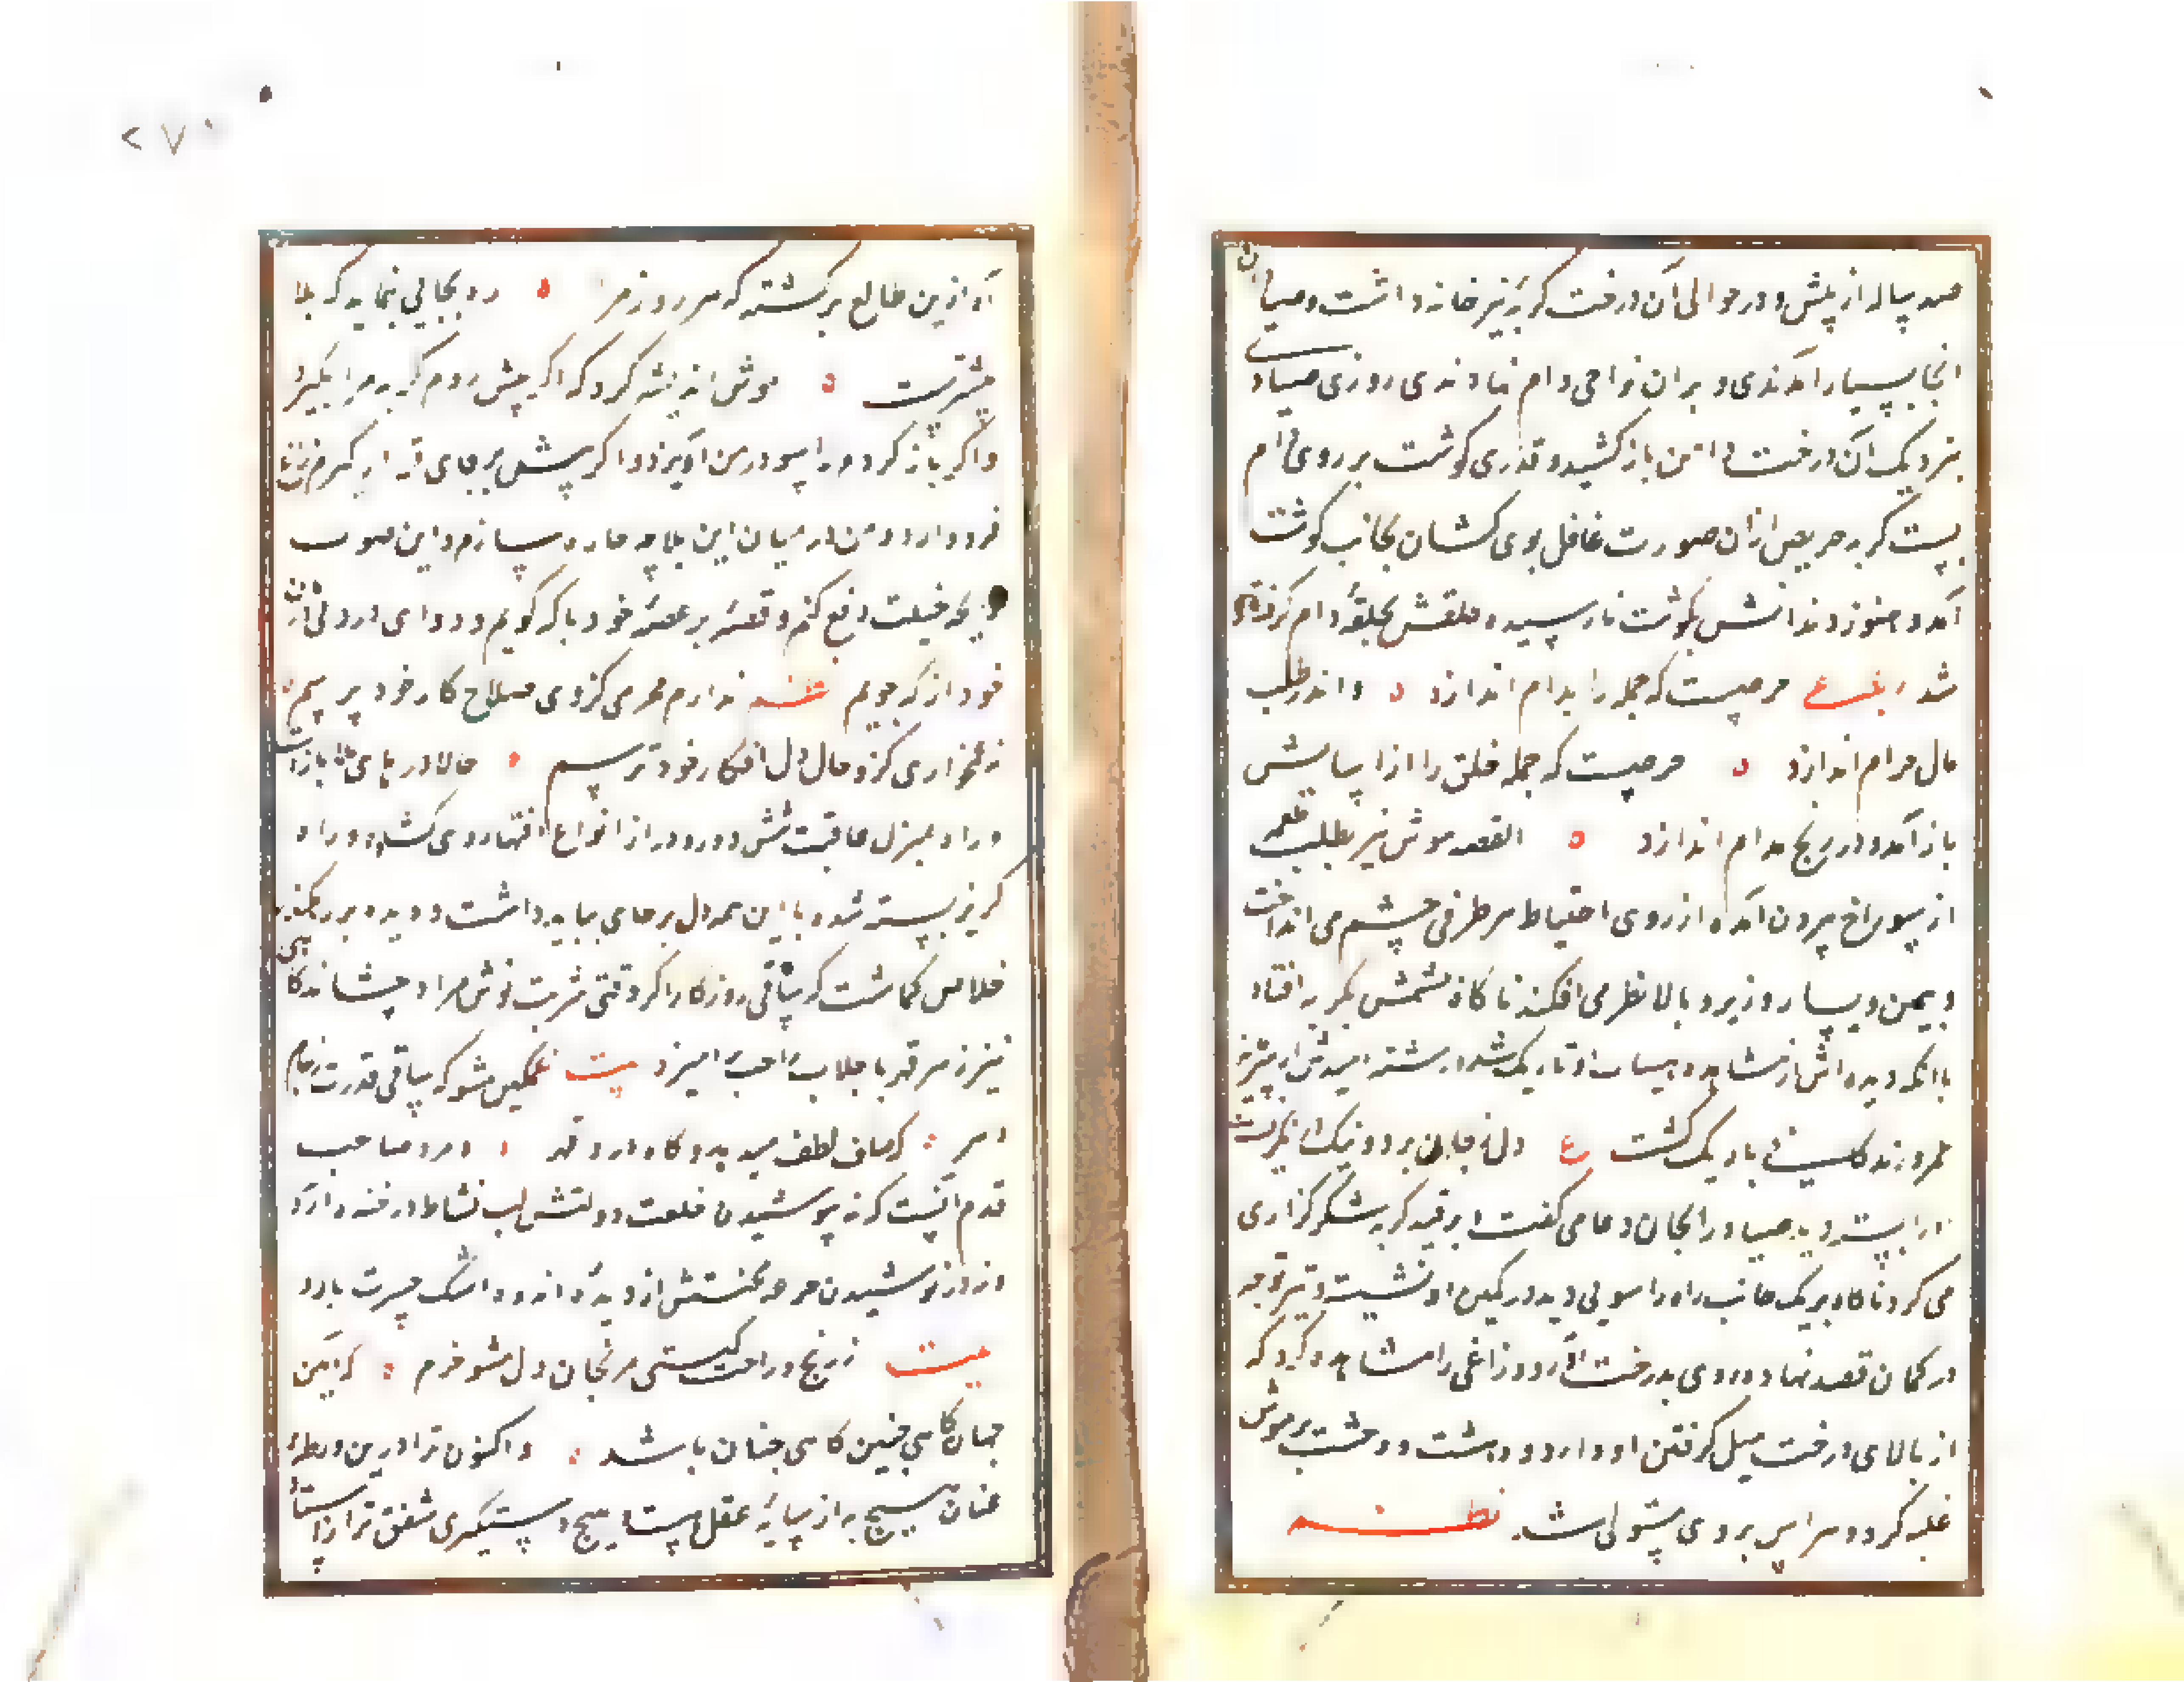 صد ساله از پیش و در حوالی آن درخت گربه نیز خانه داشت و صیادان
آنجا بسیار آمدندی و بران نواحی دام نهادندی روزی صیادی
بنزدیک آن درخت دامن باز کشید و قدری کوشت بر روی دام
ببست گربه حریص ازان صورت غافل بوی کشان بجانب کوشت
آمد و هنوز دندانش بکوشت نارسیده حلقش بحلقهٔ دام گرفتار
شد حرصست که جمله را بدام اندازد واندر طلب
مال حرام اندازد حرصست که جمله خلق را از آسایش
باز آمده در رنج مدام اندازد القصه موش نیز بطلب طعمه
از سوراخ بیرون آمده از روی احتیاط هر طرفی چشم می انداخت
و یمین و یسار و زیر و بالا نظر می افکند ناکاه چشمش بگربه افتاد
باآنکه دیده اش از مشاهده تاریک شد و رشته امیدش از
عمر و زندگانی باریک گشت ع دل از جان برد و نیک نگریست
او را بسته دید صیاد را بجان دعا می گفت و بر قید گربه شکر گزاری
می کرد ناکاه بر یک جانب راه راسوئی دید در کمین او نشسته و تیر توجه
در کمان قصد نهاده و روی بدرخت آورد زاغی را مشاهده کرد که
از بالای درخت میل گرفتن او دارد دهشت و وحشت بر موش
غلبه کرد و هراس بر وی مستولی شد نظم
آه ازین طالع برگشته که هر روز مرا ره بجایی نماید که بلا
بیشترست موش اندیشه کرد که اگر پیش روم گربه مرا بگیرد
و اگر باز گردم راسو در من آویزد و اگر بر جای قرار گیرم زاغ
فرود آید و من در میان این بلا چه چاره سازم و این صورت
بچه حیلت دفع کنم و قصهٔ پر غصهٔ خود با که گویم و دوای درد
خود از که جویم ندارم محرمی کز وی صلاح کار خود پرسم
نه غمخواری کزو حال دل افکار خود پرسم حالا در بلا باز است
و راه بمنزل عاقبت دور و دراز انواع آفتها روی گشاده و راه
گریز بسته شده با این همه دل بر جای بباید داشت و دیده بر
خلاص گماشت که ساقی روزگار اگر وقتی شربت نوش مراد چشاند گاهی
نیز زهر قهر با جلاب آمیزد بیت غمگین مشو که ساقی قدرت ز جام
دهر که صاف لطف میدهد و گاه درد قهر و مرد صاحب
قدم آنست که نه بپوشیدن خلعت دولتش لب نشاط در خنده دارد
و نه از نوشیدن جرعه از دیده اندوه اشک حسرت بارد
بیت ز رنج و راحت گیتی مرنجان دل مشو خرم که آیین
جهان گاهی چنین گاهی چنان باشد و اکنون ترا درین ورطه
هیچ به از سایهٔ عقل نیست و هیچ دستگیری شفیق تر از
۲۷۰